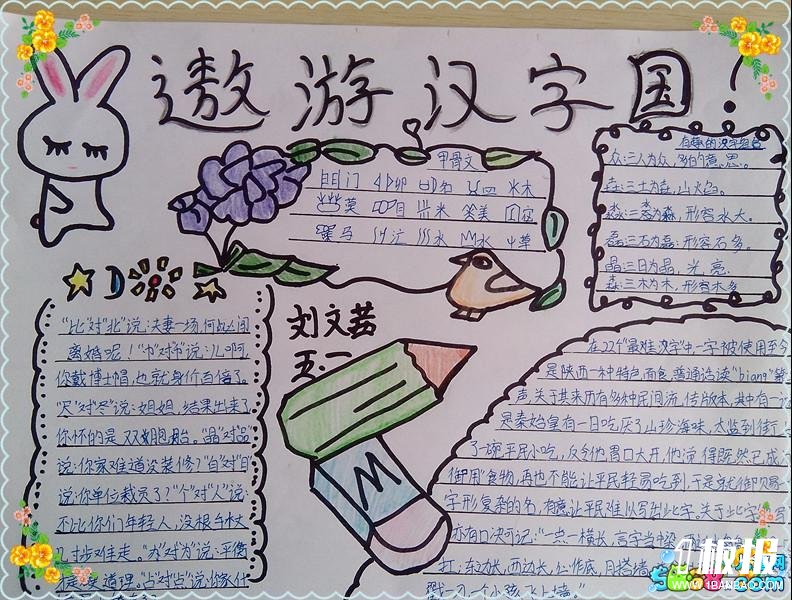 遨游汉字国
有趣的汉字组合
众:三人为众,多的意思。
焱:三火为焱,火焰。
淼:三水为淼,形容水大。
磊:三石为磊,形容石多。
晶:三日为晶,光亮。
森:三木为木,形容木多
甲骨文
门 卯 名 四 木
莫 目 米 美
马 江 水 水 草
刘文茜
五·一
"比"对"北"说:夫妻一场,何必闹
离婚呢!"巾"对"币"说:儿啊
你戴博士帽,也就身价百倍了。
"尺"对"尽"说:姐姐,结果出来了
你怀的是双胞胎。"晶"对"品"
说:你家难道没装修?"自"对"目"
说:你单位裁员了?"个"对"人"说:
不比你们年轻人,没根手杖
寸步难走。"办"对"为"说:平衡
道理。"占"对"点"说:你家什
在22个"最难汉字"中,一字被使用至今
是陕西一种特色面食,普通话读"biang"第
声,关于其来历有多种民间流传版本,其中有一
是秦始皇有一日吃厌了山珍海味,太监到街
了一碗平民小吃,反令他胃口大开,他说得既然已成
御用食物,再也不能让平民轻易吃到,于是就御赐
字形复杂的名,刻意让平民难以写出此字。关于此字
亦有口诀可记:"一点一横长,言字当中
扛;东边长,西边长,心作底,月搭墙
戳一刀,一个小孩飞上墙。"
板报网
WWW.1BANBAO.COM